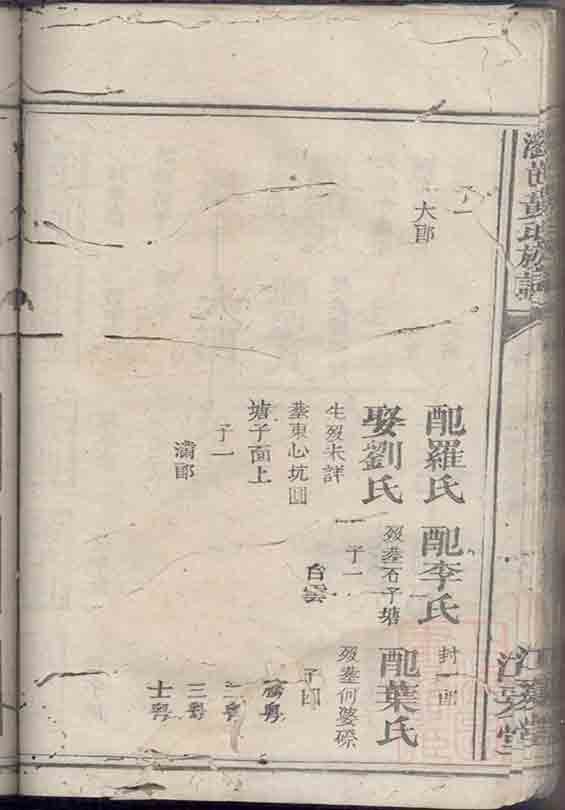 董氏族譜
江
堂
子一
大郎
配羅氏
娶劉氏
生歿未詳
葬東心坑圓
塘子面上
子一
滿郎
配李氏
歿葬石子塘
子一
台雲
封一郎
配葉氏
歿葬何婆磜
子四
二粵
三粵
士粵